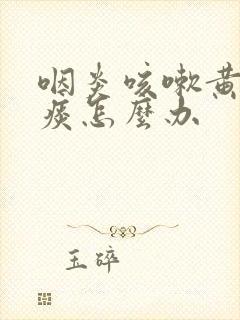 咽炎咳嗽黄
痰怎麽办
玉碎